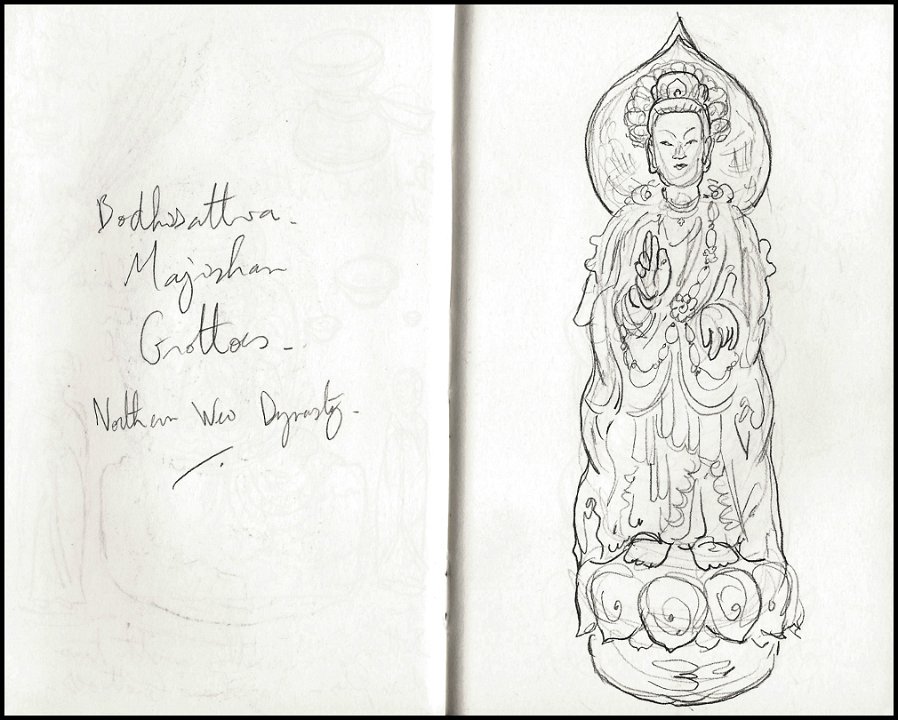 Bodhissattva.
Majishan
Grottoes.
Northern Wei Dynasty.